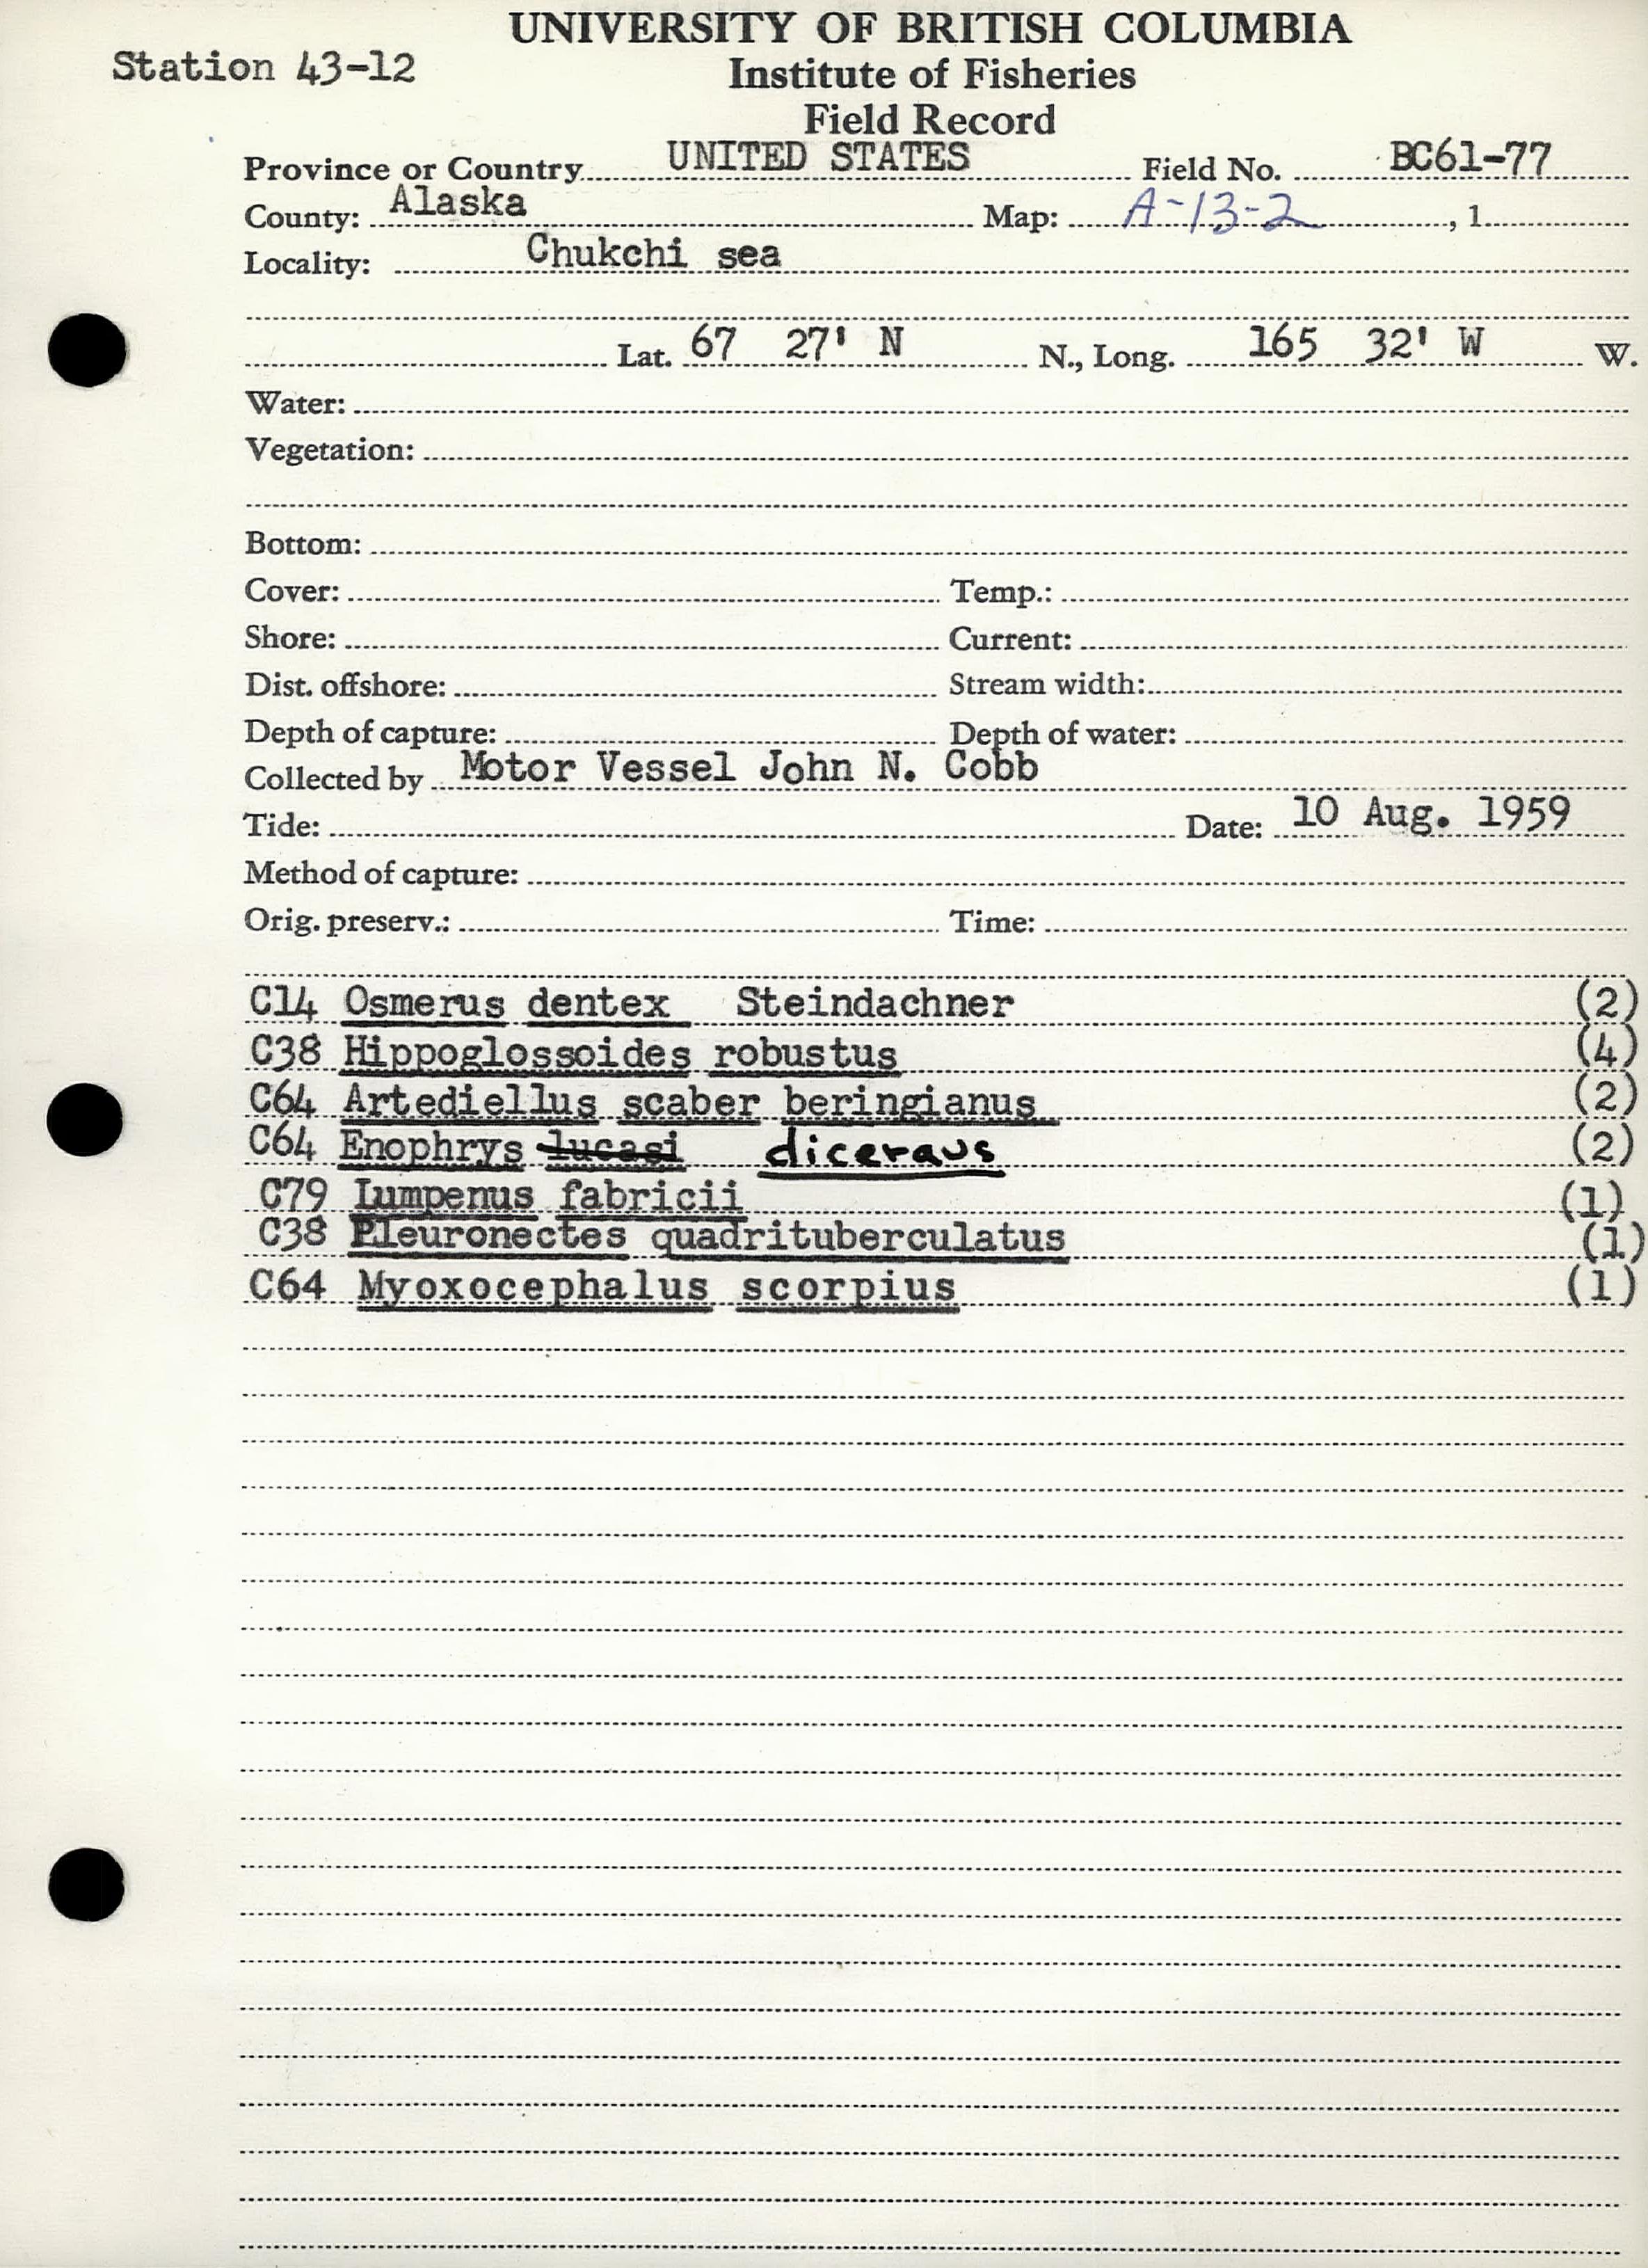 UNIVERSITY OF BRITISH COLUMBIA
Station 43-12
Institute of Fisheries
Field Record
Province or Country UNITED STATES Field No. BC61-77
County: Alaska Map: A-13-2, 1
Locality: Chukchi sea
Lat. 67 27' N N., Long. 165 32' W W.
Water:
Vegetation:
Bottom:
Cover: Temp.:
Shore: Current:
Dist. offshore: Stream width:
Depth of capture: Depth of water:
Collected by Motor Vessel John N. Cobb
Tide: Date: 10 Aug. 1959
Method of capture:
Orig. preserv.: Time:
C14 Osmerus dentex Steindachner (2)
C38 Hippoglossoides robustus (4)
C64 Artediellus scaber beringianus (2)
C64 Enophrys lucasi diceraus (2)
C79 Lumpenus fabricii (1)
C38 Pleuronectes quadrituberculatus (1)
C64 Myoxocephalus scorpius (1)